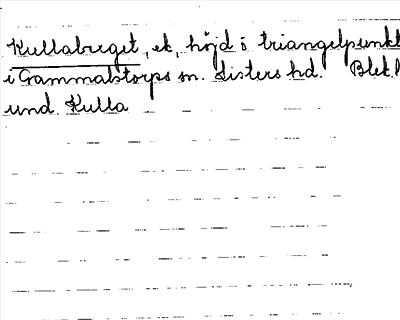 Kullaberget, ek, höjd ö triangelpunkt
i Gammalstorps sn. Listers hd. Blek. l
und. Kulla